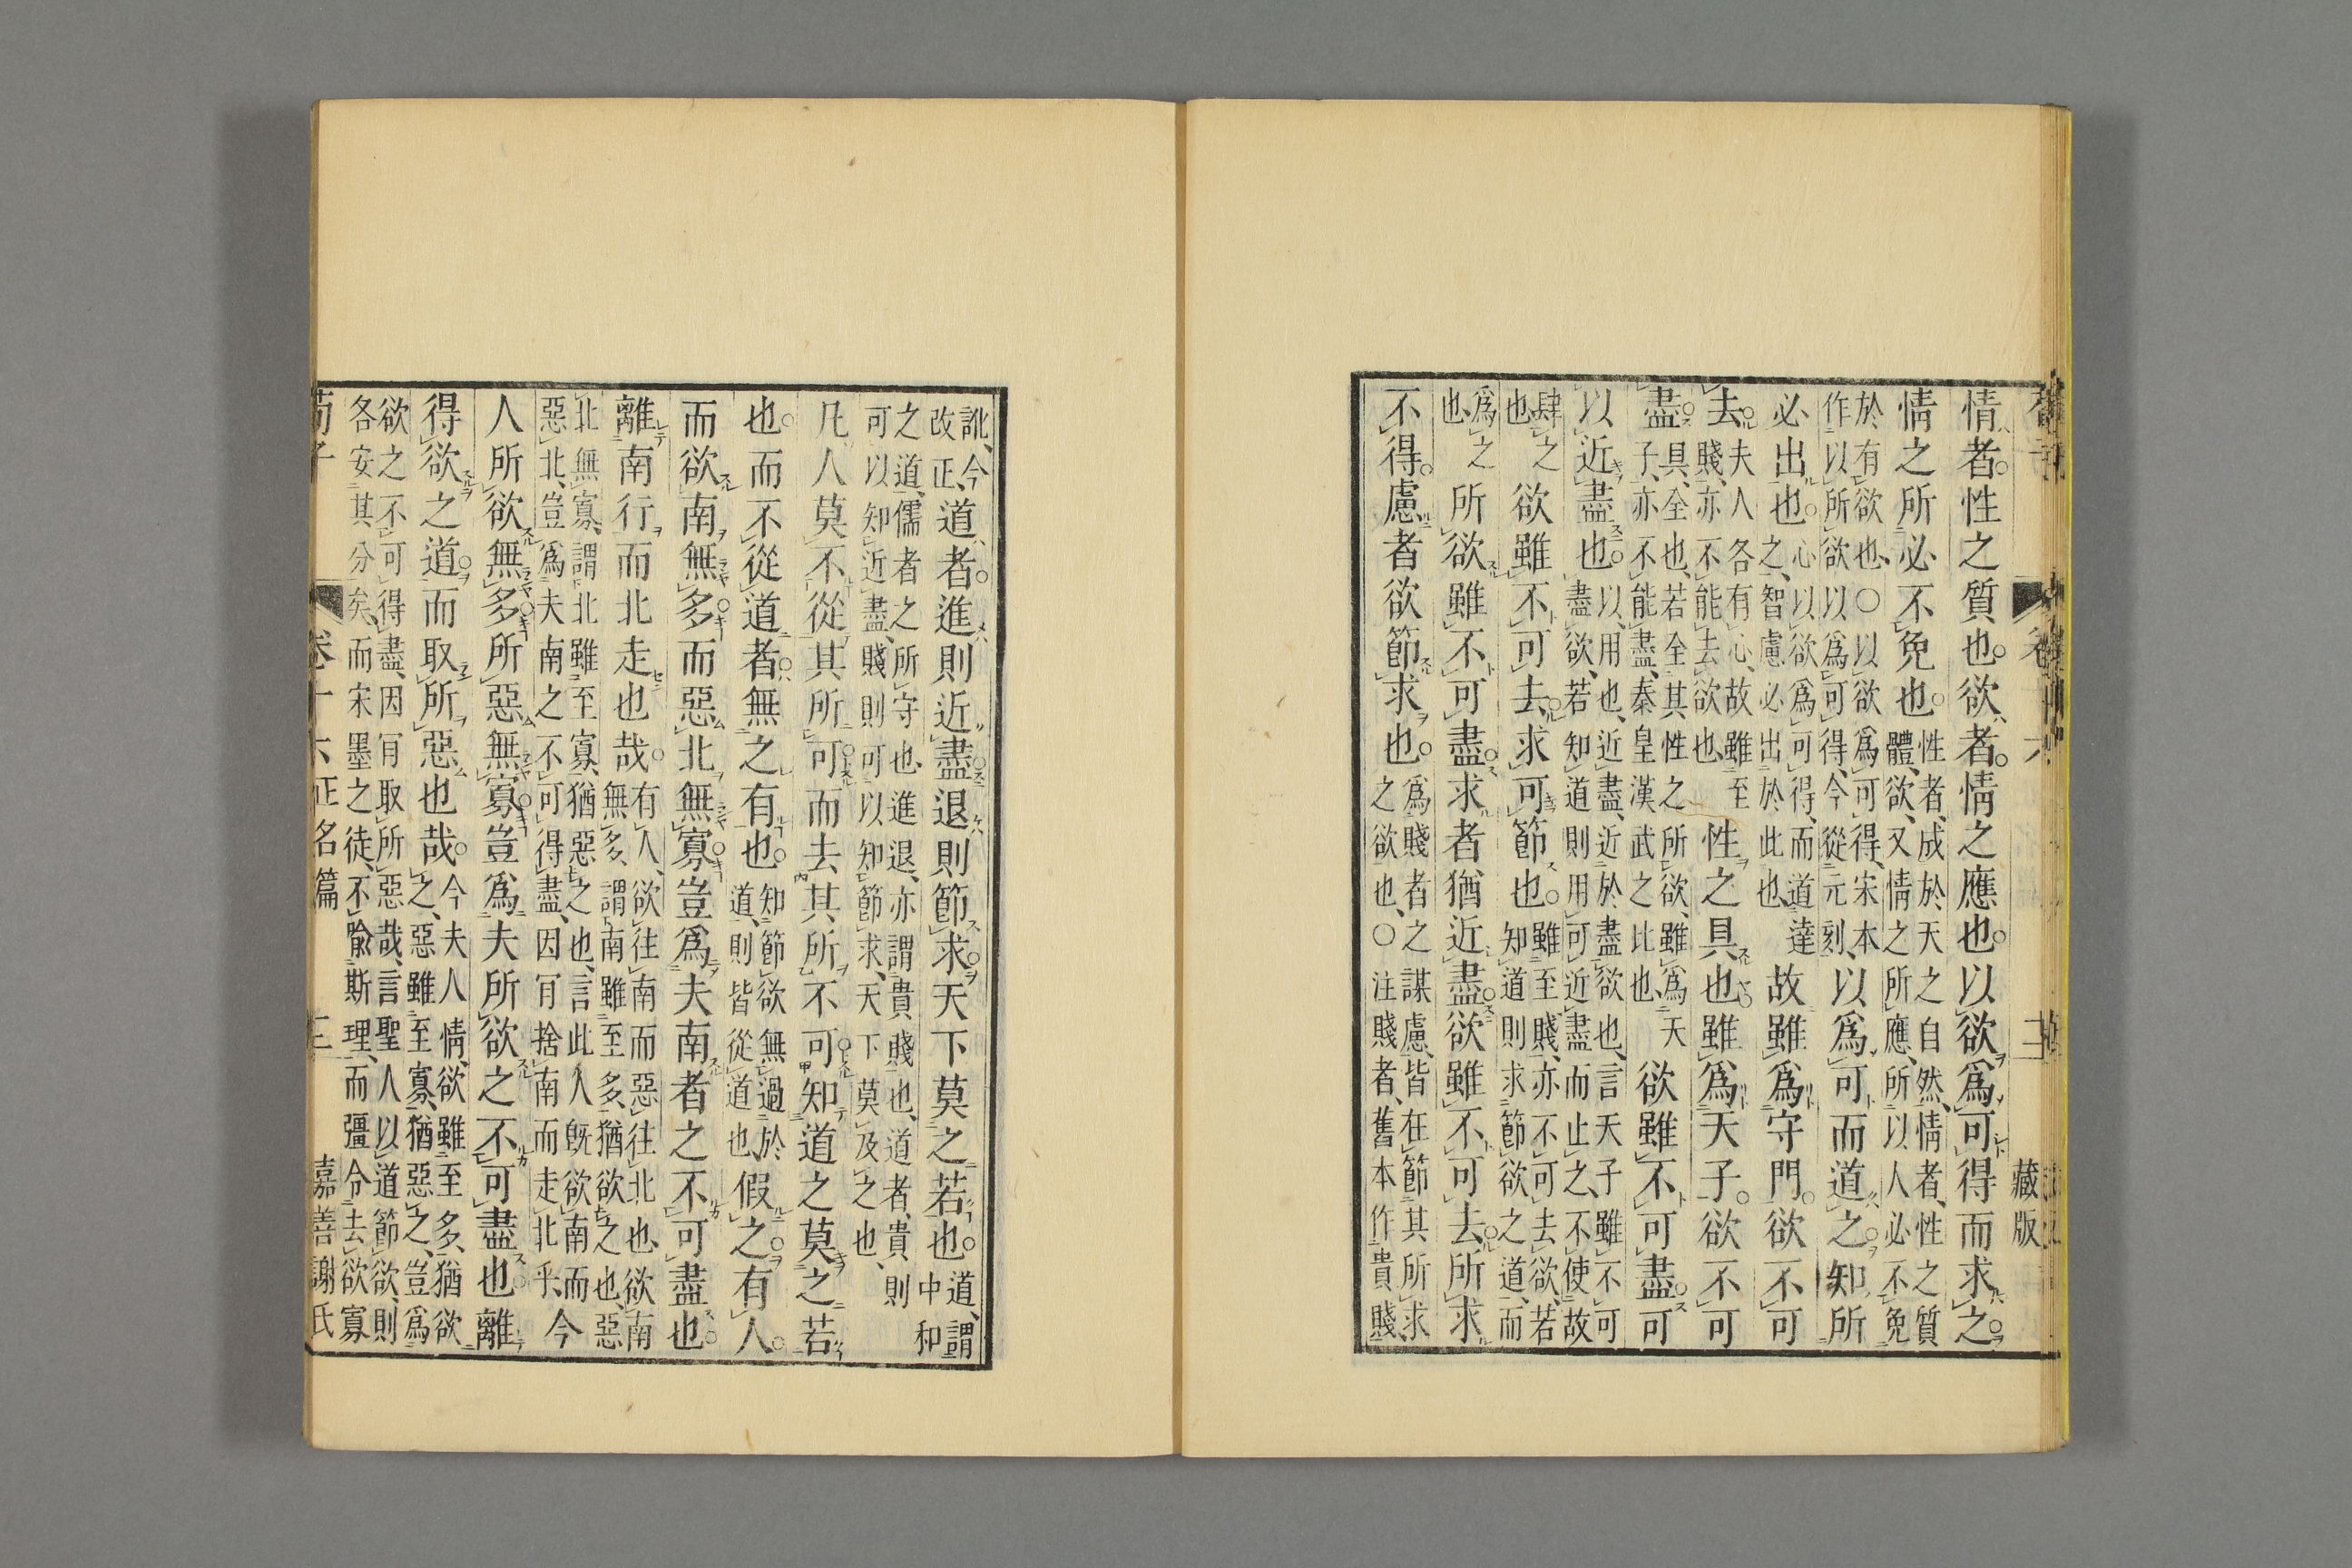 藏版
情者。性之質也。欲者。情之應也。以欲爲可得而求之。
情之所必不免也。性者、成於天之自然、情者、性之質體、欲、又情之所應、所以人必不免
於有欲也、〇以欲爲可得、宋本作以所欲以爲可得、今從元刻、以爲可而道之。知所
必出也。心以欲爲可得、而道達之、智慮必出於此也、故雖爲守門。欲不可
去。夫人各有心、故雖至賤、亦不能去欲也、性之具也。雖爲天子。欲不可
盡。具、全也、若全其性之所欲、雖爲天子、亦不能盡、秦皇漢武之比也、欲雖不可盡。可
以近盡也。以、用也、近盡、近於盡欲也、言天子雖不可盡欲、若知道則用可近盡而止之、不使故
肆之也欲雖不可去。求可節也。雖至賤、亦不可去欲、若知道則求節欲之道、而
爲之也、所欲雖不可盡。求者猶近盡。欲雖不可去。所求
不得。慮者欲節求也。爲賤者之謀慮、皆在節其所求之欲也、〇注賤者、舊本作貴賤、
訛、今改正、道者。進則近盡。退則節求。天下莫之若也。道、謂中和
之道、儒者之所守也、進退、亦謂貴賤也、道者、貴則可以知近盡、賤則可以知節求、天下莫及之也、
凡人莫不從其所可。而去其所不可。知道之莫之若
也。而不從道者。無之有也。知節欲無過於道、則皆從道也、假之。有人。
而欲南無多。而惡北無寡。豈爲夫南者之不可盡也。
離南行而北走也哉。有人、欲往南而惡往北也、欲南無多、謂南雖至多、猶欲之也、惡
北無寡、謂北雖至寡、猶惡之也、言此人既欲南而惡北、豈爲夫南之不可得盡、因肎捨南而走北乎、今
人所欲無多。所惡無寡。豈爲夫所欲之不可盡也。離
得欲之道。而取所惡也哉。今夫人情、欲雖至多、猶欲之、惡雖至寡、猶惡之、豈爲
欲之不可得盡、因肎取所惡哉、言聖人以道節欲、則各安其分矣、而宋墨之徒、不喩斯理、而彊令去欲寡
荀子 卷十六正名篇 三 嘉善謝氏